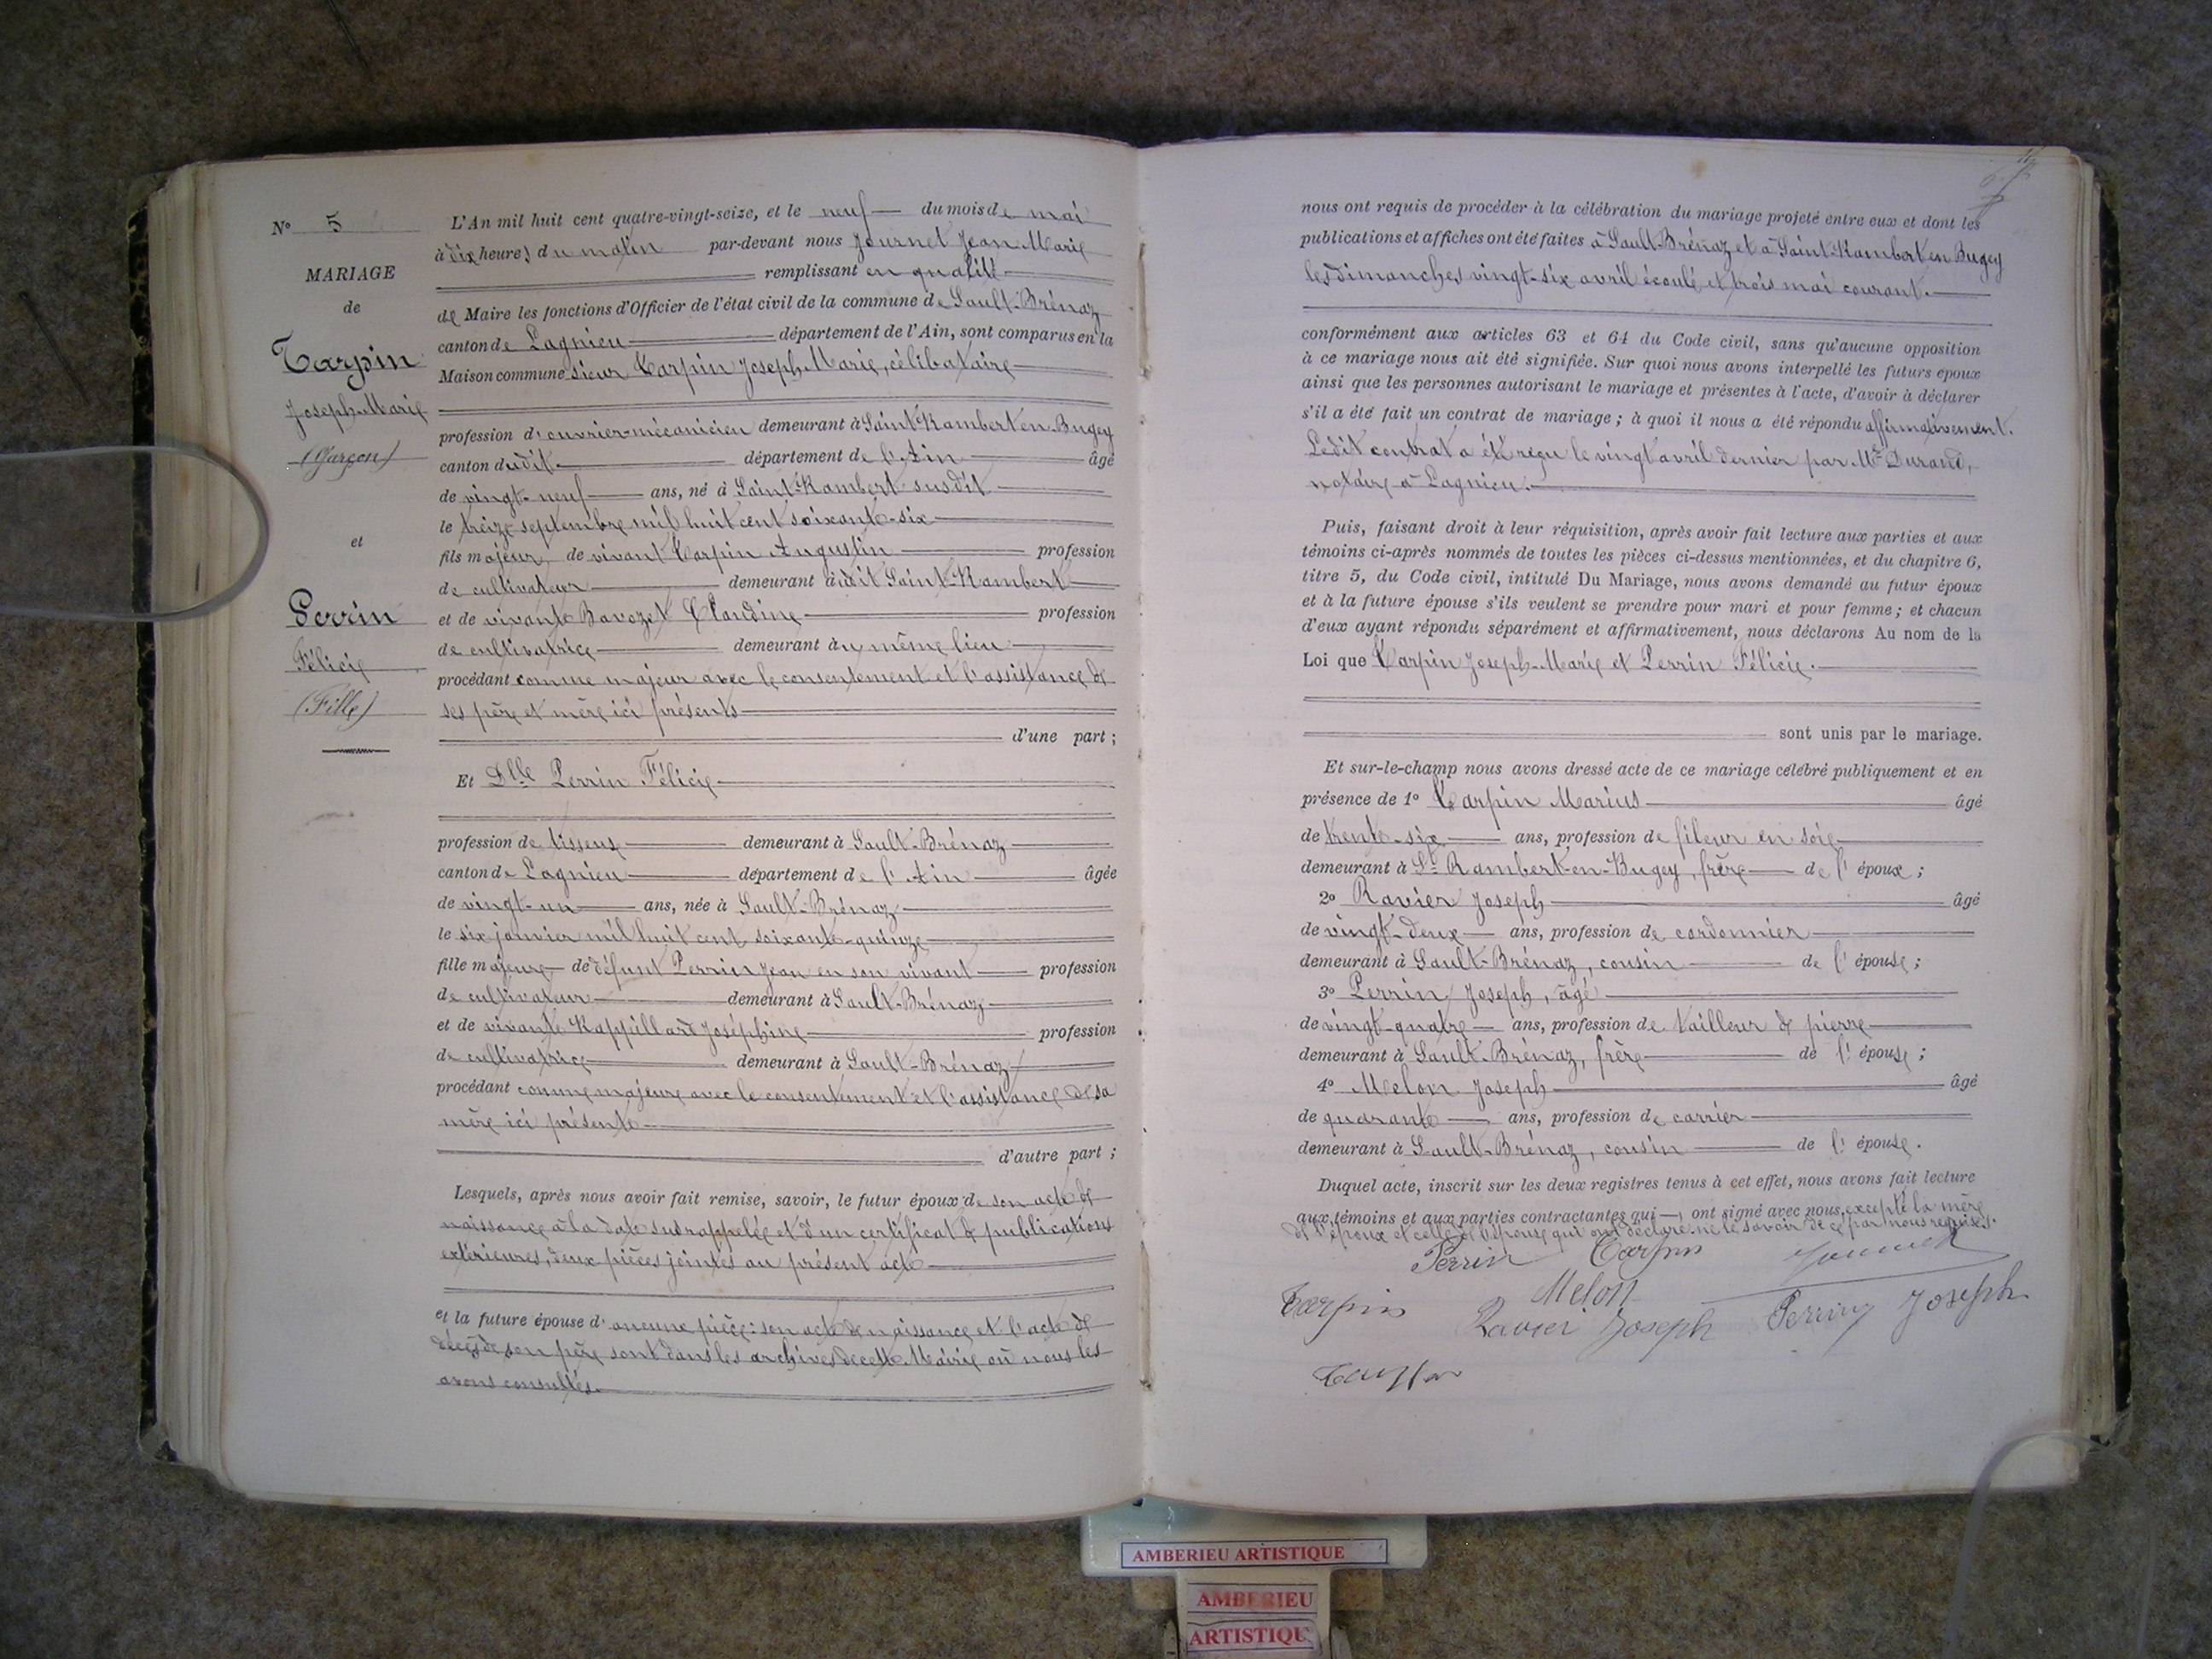 N° 5
MARIAGE
de
Tarpin
Joseph-Marie
(Garçon)
et
Perrin
Félicie
(Fille)
L'An mil huit cent quatre-vingt-seize, et le neuf du mois de mai
à dix heures du matin par-devant nous Journet Jean-Marie
remplissant en qualité
de Maire les fonctions d'Officier de l'état civil de la commune de Sault-Brénaz
canton de Lagnieu département de l'Ain, sont comparus en la
Maison commune sieur Tarpin Joseph-Marie, célibataire
profession d'ouvrier-mécanicien demeurant à Saint-Rambert en Bugey
canton dudit département de l'Ain âgé
de vingt-neuf ans, né à Saint-Rambert susdit
le treize septembre mil huit cent soixante-six
fils majeur de vivant Tarpin Augustin profession
de cultivateur demeurant audit Saint-Rambert
et de vivante Bavozet Claudine profession
de cultivatrice demeurant au même lieu
procédant comme majeur avec le consentement et l'assistance de
ses père et mère ici présents
d'une part ;
Et Dlle Perrin Félicie
profession de tisseuse demeurant à Sault-Brénaz
canton de Lagnieu département de l'Ain âgée
de vingt-un ans, née à Sault-Brénaz
le six janvier mil huit cent soixante-quinze
fille majeure de défunt Perrin Jean en son vivant profession
de cultivateur demeurant à Sault-Brénaz
et de vivante Rappillard Joséphine profession
de cultivatrice demeurant à Sault-Brénaz
procédant comme majeure avec le consentement et l'assistance de sa
mère ici présente
d'autre part ;
Lesquels, après nous avoir fait remise, savoir, le futur époux de son acte de
naissance à la date susrappelée et d'un certificat de publications
extérieures, deux pièces jointes au présent acte
et la future épouse d'aucune pièce : son acte de naissance et l'acte de
décès de son père sont dans les archives de cette Mairie où nous les
avons consultés.
nous ont requis de procéder à la célébration du mariage projeté entre eux et dont les
publications et affiches ont été faites à Sault-Brénaz et à Saint-Rambert en Bugey
les dimanches vingt-six avril écoulé et trois mai courant.
conformément aux articles 63 et 64 du Code civil, sans qu'aucune opposition
à ce mariage nous ait été signifiée. Sur quoi nous avons interpellé les futurs époux
ainsi que les personnes autorisant le mariage et présentes à l'acte, d'avoir à déclarer
s'il a été fait un contrat de mariage ; à quoi il nous a été répondu affirmativement.
Ledit contrat a été reçu le vingt avril dernier par Me Durand,
notaire à Lagnieu.
Puis, faisant droit à leur réquisition, après avoir fait lecture aux parties et aux
témoins ci-après nommés de toutes les pièces ci-dessus mentionnées, et du chapitre 6,
titre 5, du Code civil, intitulé Du Mariage, nous avons demandé au futur époux
et à la future épouse s'ils veulent se prendre pour mari et pour femme ; et chacun
d'eux ayant répondu séparément et affirmativement, nous déclarons Au nom de la
Loi que Tarpin Joseph-Marie et Perrin Félicie.
sont unis par le mariage.
Et sur-le-champ nous avons dressé acte de ce mariage célébré publiquement et en
présence de 1° Tarpin Marius âgé
de trente-six ans, profession de fileur en soie
demeurant à St Rambert-en-Bugey, frère de l'époux ;
2° Ravier Joseph âgé
de vingt-deux ans, profession de cordonnier
demeurant à Sault-Brénaz, cousin de l'épouse ;
3° Perrin Joseph, âgé
de vingt-quatre ans, profession de tailleur de pierre
demeurant à Sault-Brénaz, frère de l'épouse ;
4° Melon Joseph âgé
de quarante ans, profession de carrier
demeurant à Sault-Brénaz, cousin de l'épouse.
Duquel acte, inscrit sur les deux registres tenus à cet effet, nous avons fait lecture
aux témoins et aux parties contractantes qui ont signé avec nous, excepté la mère
de l'époux et celle de l'épouse qui ont déclaré ne le savoir de ce par nous requises.
Perrin Tarpin Journet
Tarpin Melon
Ravier Joseph Perrin Joseph
AMBERIEU ARTISTIQUE
AMBERIEU
ARTISTIQU